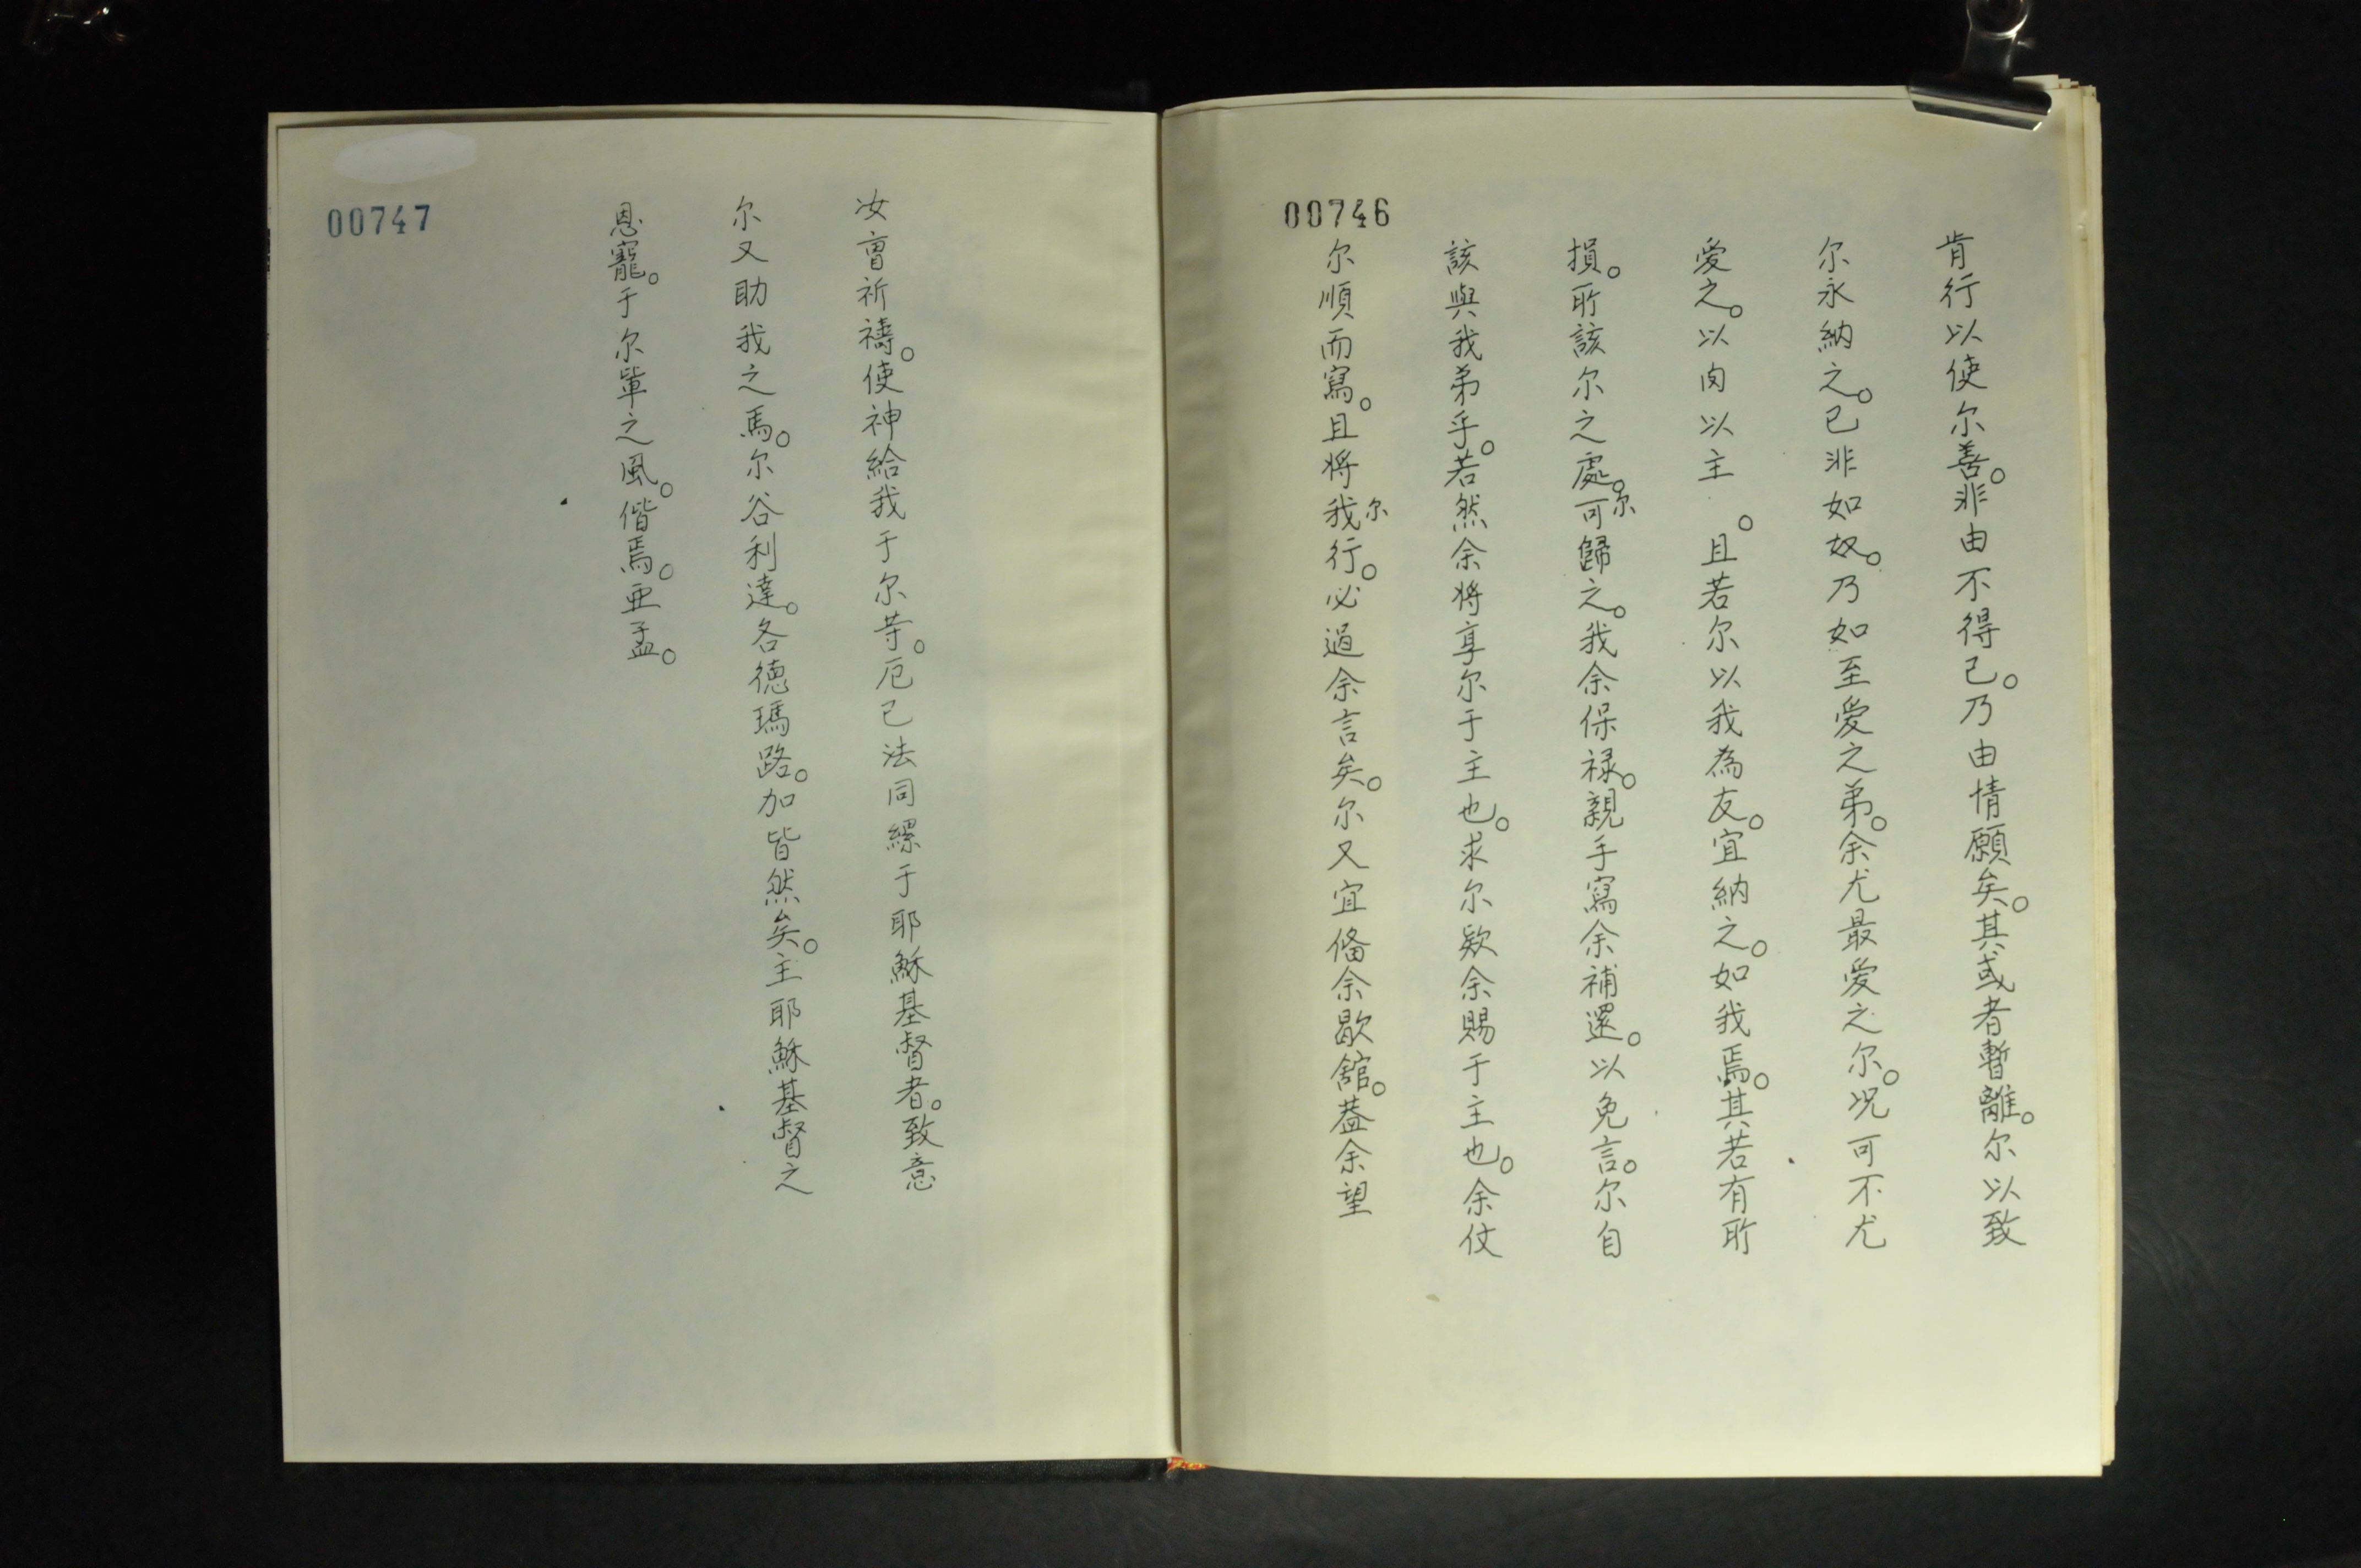 00746
肯行以使尔善。非由不得已。乃由情願矣。其或者暫離。尔以致
尔永納之。已非如奴。乃如至愛之弟。余尤最愛之尔。况可不尤
愛之。以肉以主。且若尔以我為友。宜納之。如我焉。其若有所
損。所該尔之處。可尔歸之。我余保禄。親手寫余補還。以免言。尔自
該與我弟乎。若然余将享尔于主也。求尔欵余賜于主也。余仗
尔順而寫。且将我尔行。必過余言矣。尔又宜俻余歇舘。葢余望
00747
汝曹祈禱。使神給我于尔等。厄巳法同縲于耶穌基督者。致意
尔又助我之馬。尔谷利達。各德瑪路。加皆然矣。主耶穌基督之
恩寵。于尔軰之風。偕焉。亜孟。